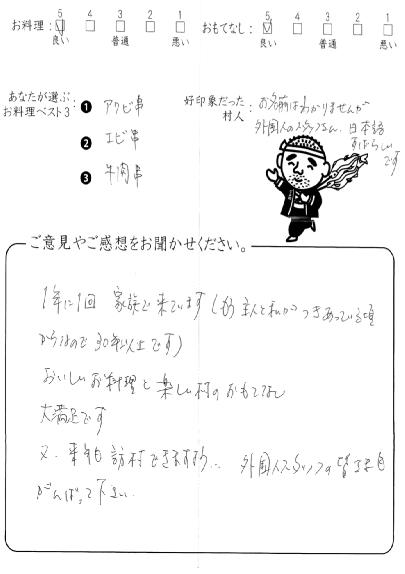 お料理: 5 4 3 2 1 おもてなし: 5 4 3 2 1
良い 普通 悪い 良い 普通 悪い
あなたが選ぶ
お料理ベスト3:
❶ アワビ串
❷ エビ串
❸ 牛肉串
好印象だった
村人:
お名前はわかりませんが
外国人のスタッフさん、日本語
すばらしい
です
ご意見やご感想をお聞かせください。
1年に1回 家族で来ています(もう主人と私がつきあっている頃
からなので30年以上です)
おいしいお料理と楽しい村のおもてなし
大満足です
又、来年も訪村できますよう… 外国人スタッフの皆さまも
がんばって下さい